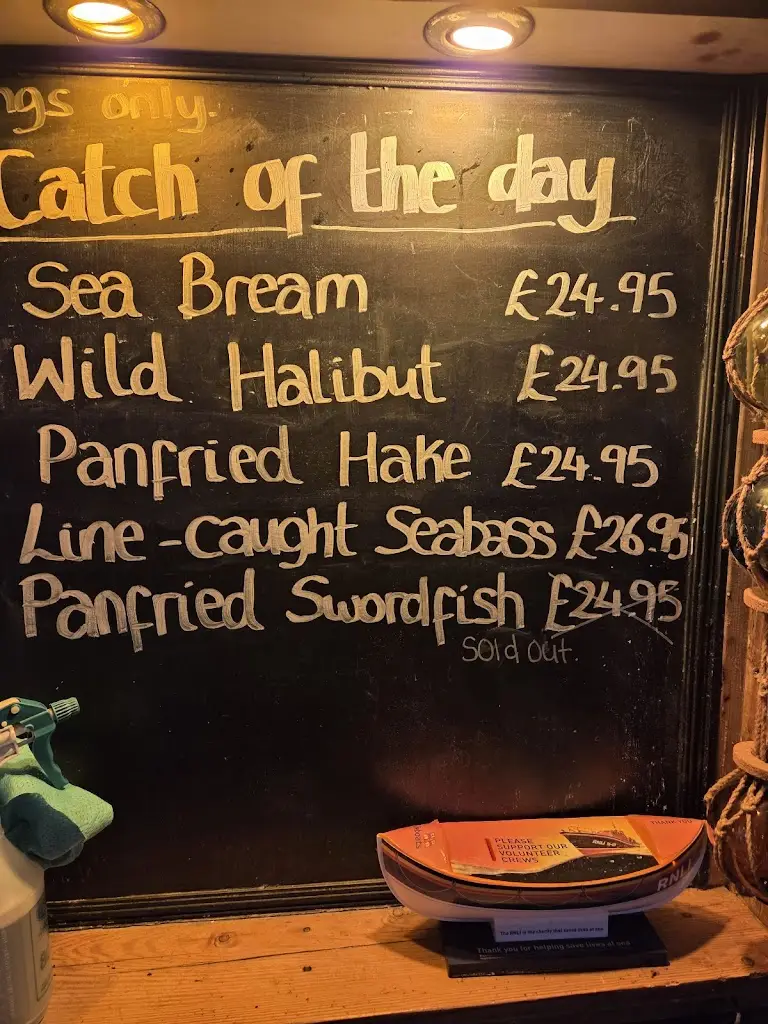 ngs only.
Catch of the day
Sea Bream £24.95
Wild Halibut £24.95
Panfried Hake £24.95
Line-caught Seabass £26.95
Panfried Swordfish £24.95
Sold out.
THANK YOU
PLEASE
SUPPORT OUR
VOLUNTEER
CREWS
RNLI
The RNLI is the charity that saves lives at sea
Thank you for helping save lives at sea